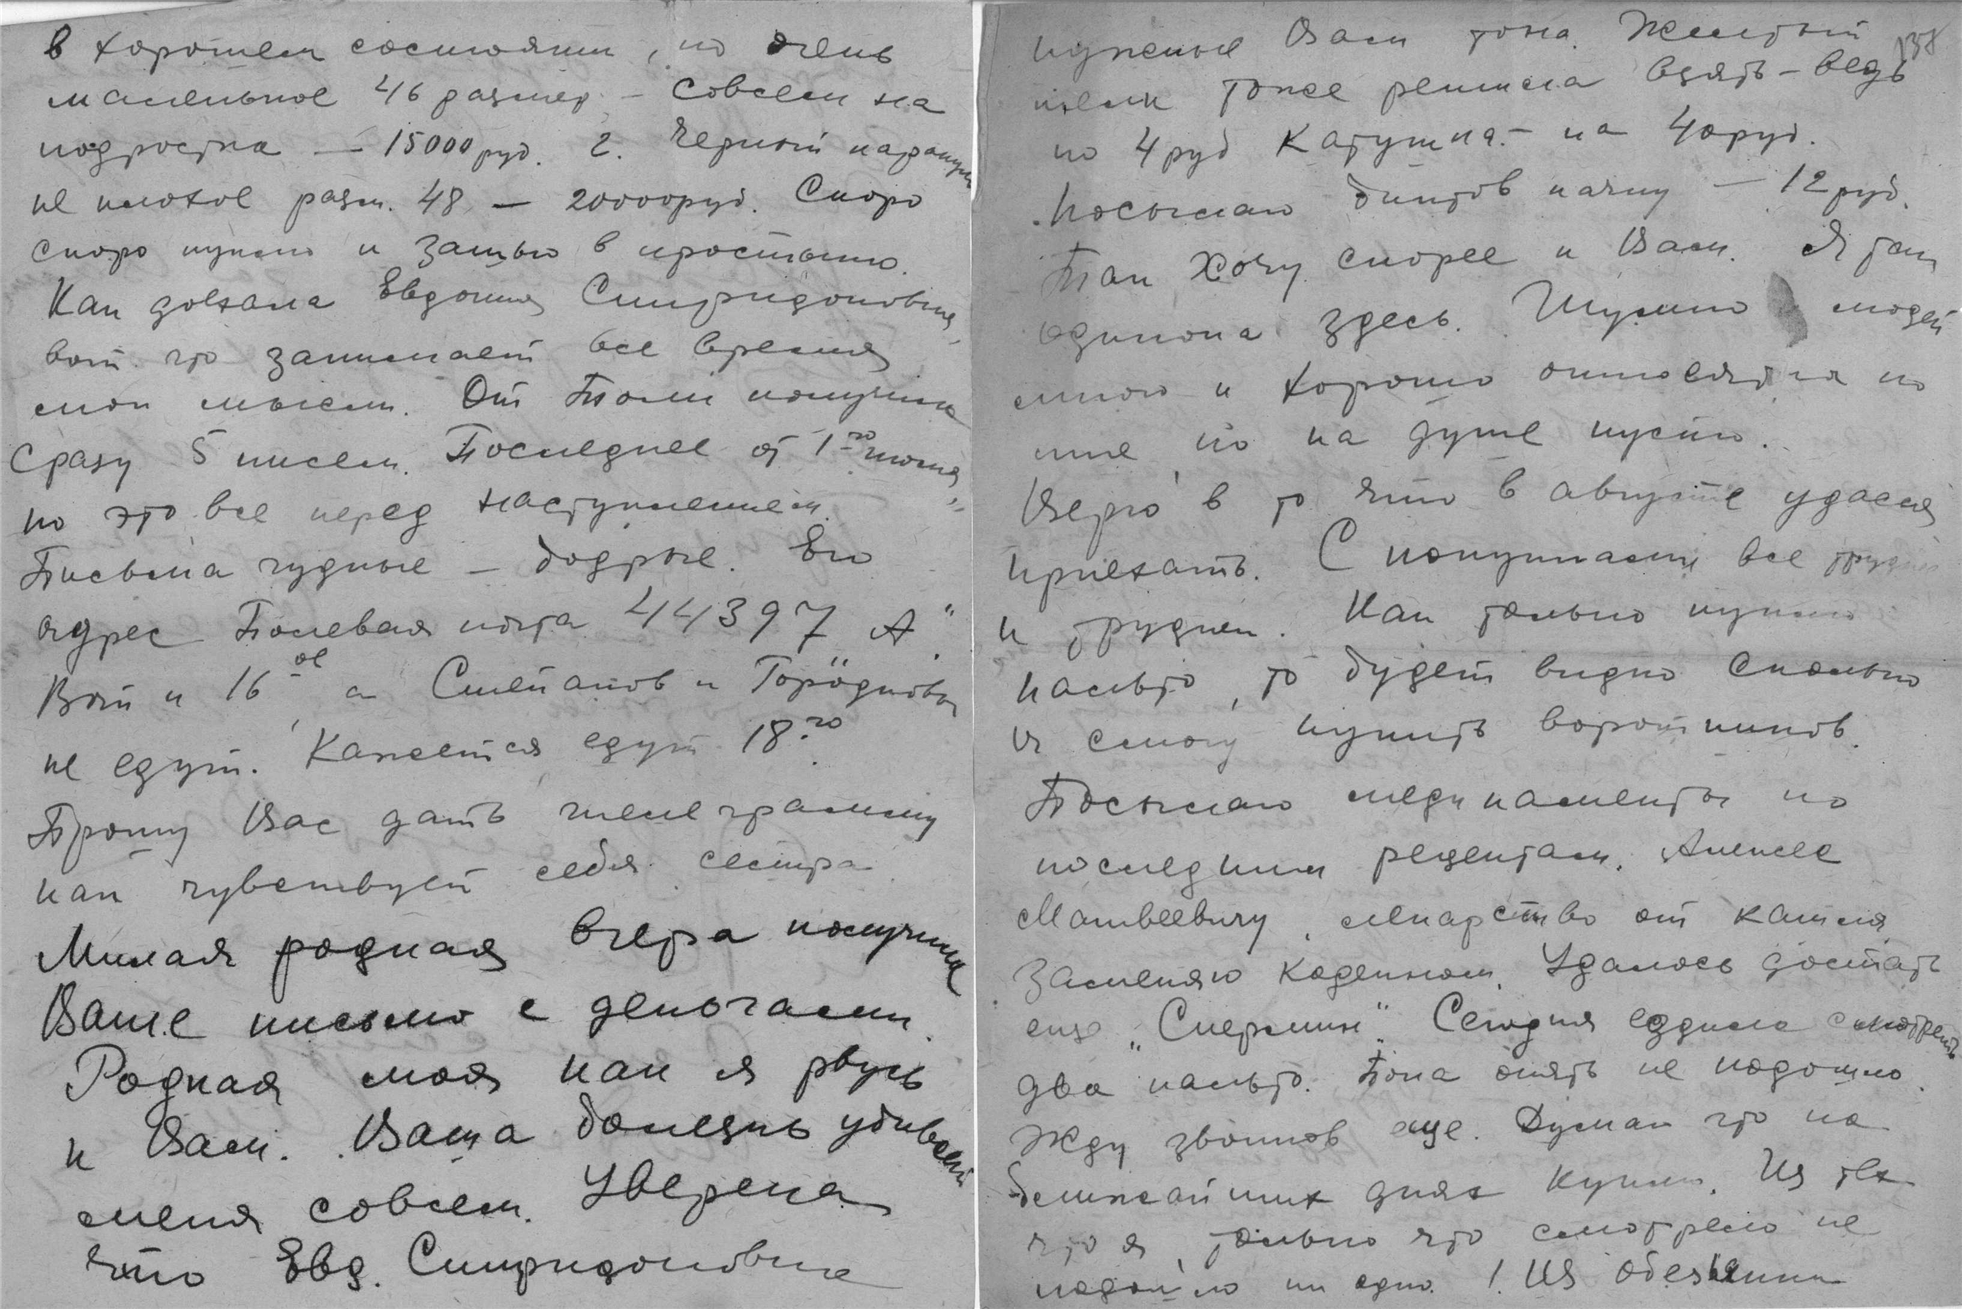 в хорошем состоянии, но очень
маленькое 46 размер – совсем на
подростка – 15000 руб. 2. Черный каракуль
не плохое разм. 48 – 20000 руб. Скоро
скоро куплю и зашью в простыню.
Как доехала Евдокия Спиридоновна,
вот что занимает все время
мои мысли. От Толи получила
сразу 5 писем. Последнее от 1го июля
но это все перед наступлением.
Письма чудные – бодрые. Его
адрес Полевая почта 44397 „А“.
Вот и 16ое, а Степанов и Городнова
не едут. Кажется едут 18го.
Прошу Вас дать телеграмму
как чувствует себя сестра.
Милая родная вчера получила
Ваше письмо с деньгами.
Родная моя как я рвусь
к Вам. Ваша болезнь убивает
меня совсем. Уверена
что Евд. Спиридоновна
138
нужные Вам тона. Желтый
тоже решила взять – ведь
по 4 руб катушка – на 40 руб.
Посылаю бинтов пачку – 12 руб.
Так хочу скорее к Вам. Я так
одинока здесь. Шумно людей
много и хорошо относятся ко
мне но на душе пусто.
Верю в то что в августе удастся
приехать. С покупками все трудней
и трудней. Как только куплю
пальто, то будет видно сколько
я смогу купить воротников.
Посылаю медикаменты по
последним рецептам. Алексею
Матвеевичу лекарство от кашля
заменяю кодеином. Удалось достать
еще „Спермин“. Сегодня ездила смотреть
два пальто. Пока опять не подошло.
Жду звонков еще. Думаю что на
ближайших днях куплю. Из тех
что я только что смотрела не
подошло ни одно! Из обезьянки